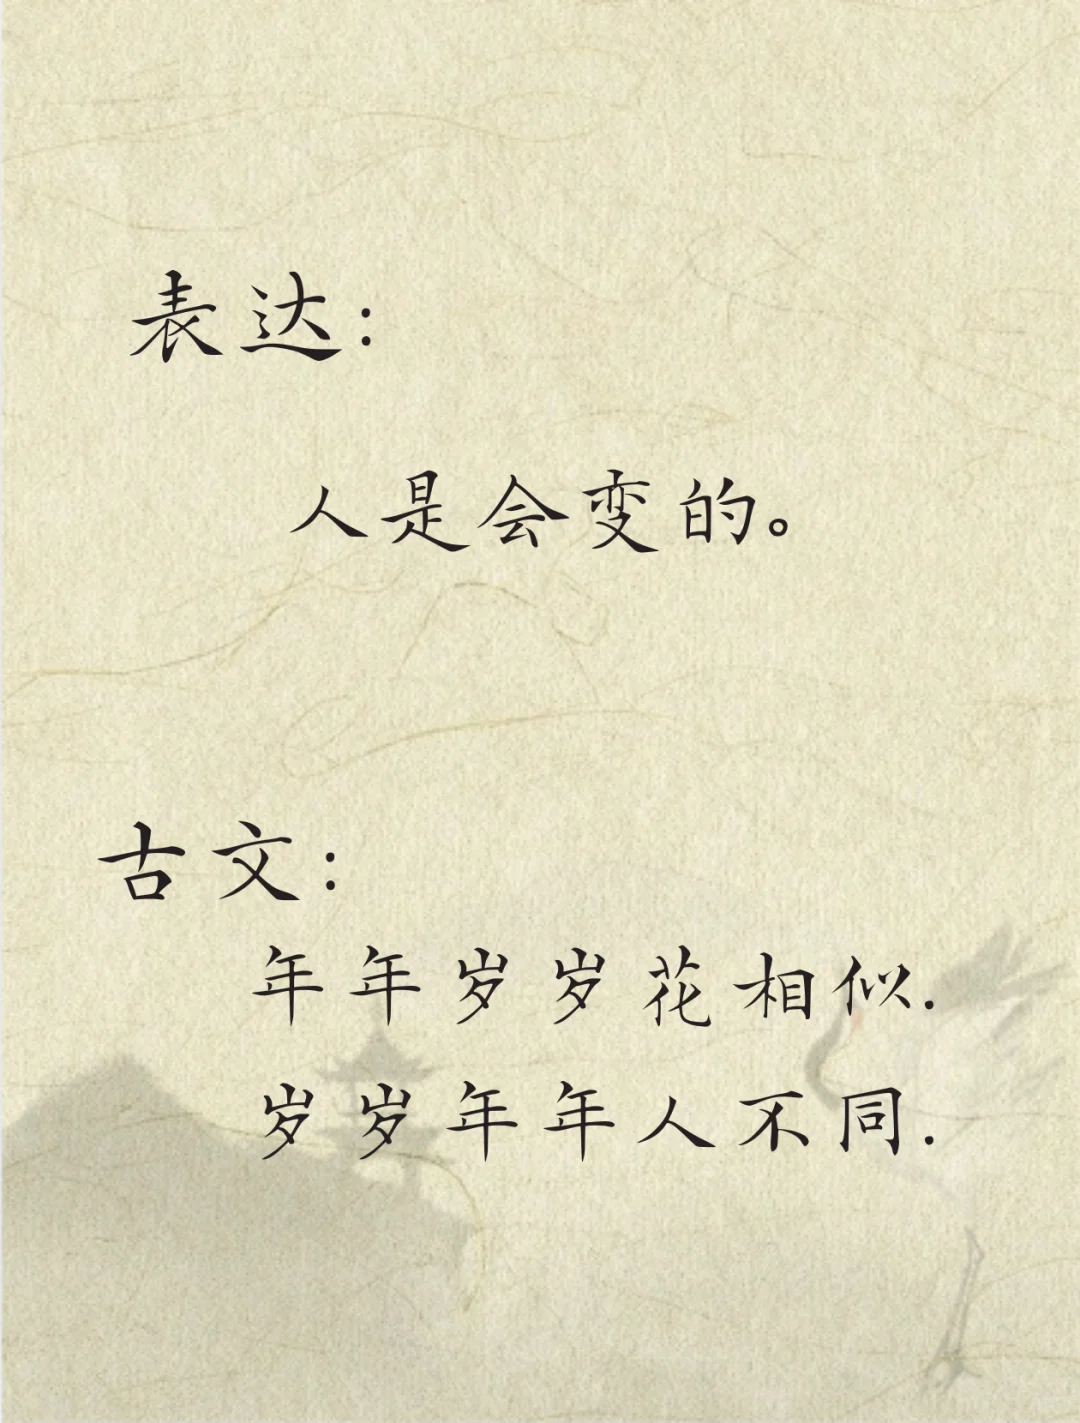 表达:
人是会变的。
古文:
年年岁岁花相似.
岁岁年年人不同.